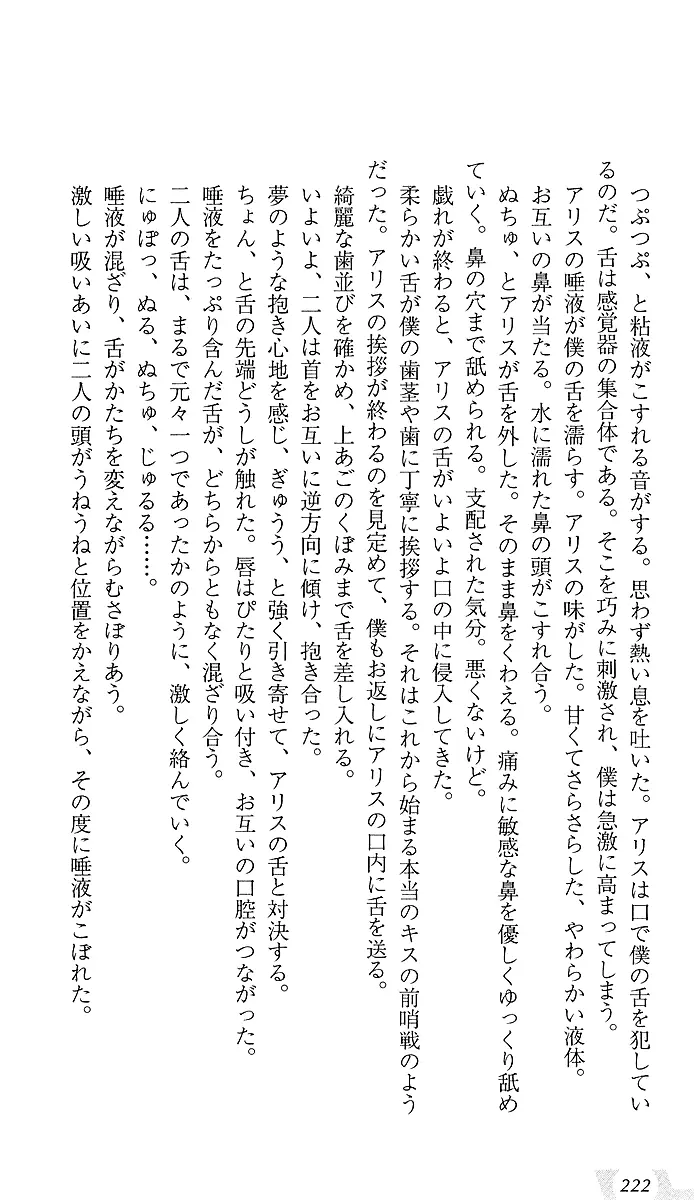 つぷつぷ、と粘液がこすれる音がする。思わず熱い息を吐いた。アリスは口で僕の舌を犯してい
るのだ。舌は感覚器の集合体である。そこを巧みに刺激され、僕は急激に高まってしまう。
アリスの唾液が僕の舌を濡らす。アリスの味がした。甘くてさらさらした、やわらかい液体。
お互いの鼻が当たる。水に濡れた鼻の頭がこすれ合う。
ぬちゅ、とアリスが舌を外した。そのまま鼻をくわえる。痛みに敏感な鼻を優しくゆっくり舐め
ていく。鼻の穴まで舐められる。支配された気分。悪くないけど。
戯れが終わると、アリスの舌がいよいよ口の中に侵入してきた。
柔らかい舌が僕の歯茎や歯に丁寧に挨拶する。それはこれから始まる本当のキスの前哨戦のよう
だった。アリスの挨拶が終わるのを見定めて、僕もお返しにアリスの口内に舌を送る。
綺麗な歯並びを確かめ、上あごのくぼみまで舌を差し入れる。
いよいよ、二人は首をお互いに逆方向に傾け、抱き合った。
夢のような抱き心地を感じ、ぎゅうう、と強く引き寄せて、アリスの舌と対決する。
ちょん、と舌の先端どうしが触れた。唇はぴたりと吸い付き、お互いの口腔がつながった。
唾液をたっぷり含んだ舌が、どちらからともなく混ざり合う。
二人の舌は、まるで元々一つであったかのように、激しく絡んでいく。
にゅぽっ、ぬる、ぬちゅ、じゅるる……。
唾液が混ざり、舌がかたちを変えながらむさぼりあう。
激しい吸いあいに二人の頭がうねうねと位置をかえながら、その度に唾液がこぼれた。
222